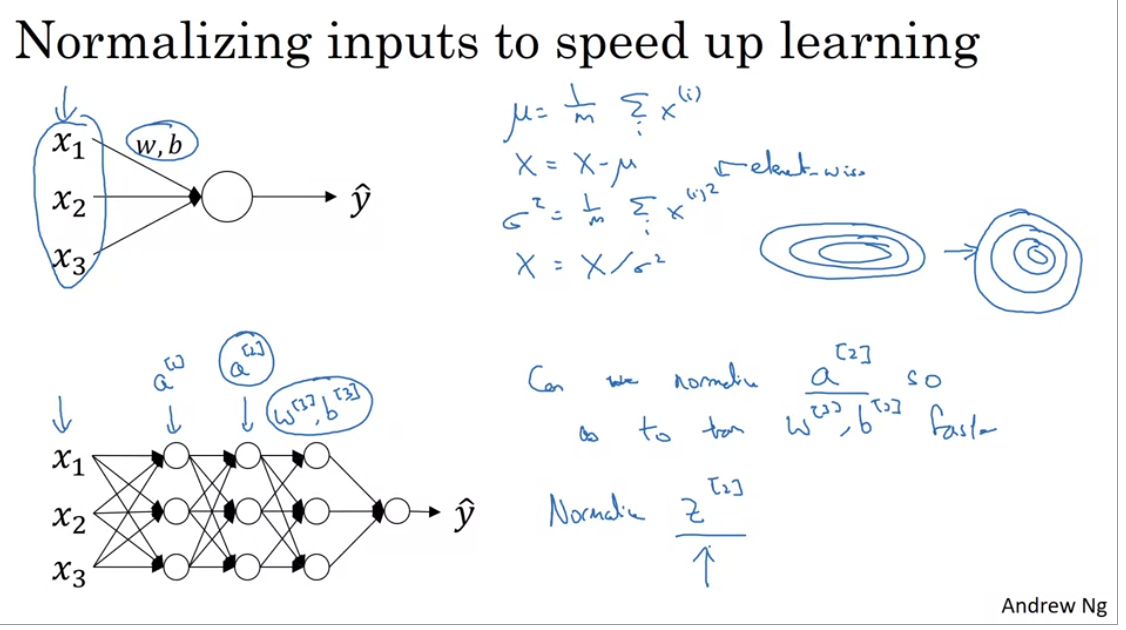 Normalizing inputs to speed up learning
x₁
x₂
x₃
w, b
ŷ
μ = 1/m Σᵢ x⁽ⁱ⁾
X = X - μ
σ² = 1/m Σᵢ x⁽ⁱ⁾²
element-wise
X = X/σ²
a^[1]
a^[2]
w^[3], b^[3]
x₁
x₂
x₃
ŷ
Can we normalize a^[2] so
as to train w^[3], b^[3] faster
Normalize z^[2]
Andrew Ng